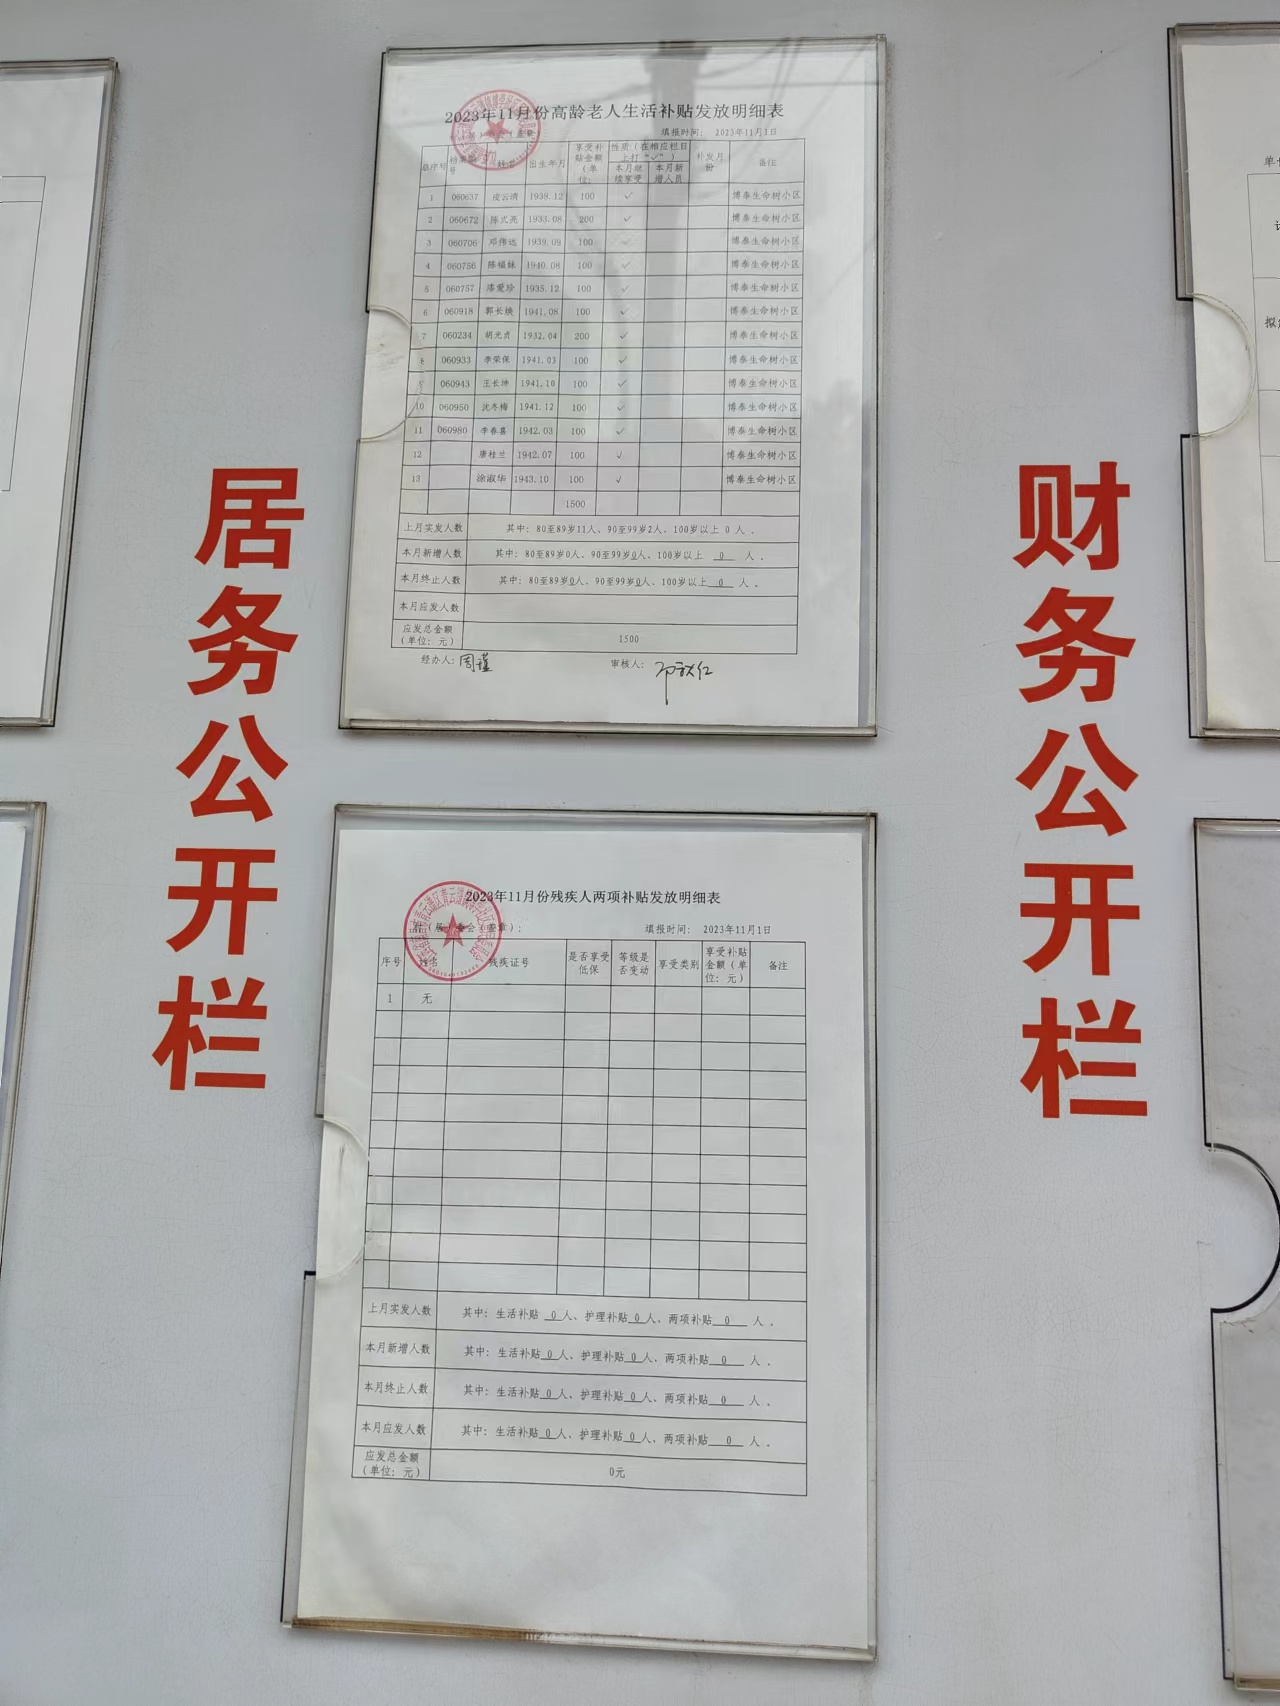 居务公开栏
财务公开栏
2023年11月份高龄老人生活补贴发放明细表
填报时间： 2023年11月1日
总序号 姓名 出生年月 享受补贴金额（单位： 性质（在相应栏目上打“✓”） 补发月份 备注
本月继续享受 本月新增人员
1 060637 凌云清 1939.12 100 ✓ 博泰生命树小区
2 060672 陈式亮 1933.08 200 ✓ 博泰生命树小区
3 060706 邓伟远 1939.09 100 ✓ 博泰生命树小区
4 060756 陈福妹 1940.08 100 ✓ 博泰生命树小区
5 060757 漆爱珍 1935.12 100 ✓ 博泰生命树小区
6 060918 郭长焕 1941.08 100 ✓ 博泰生命树小区
7 060234 胡光贞 1932.04 200 ✓ 博泰生命树小区
8 060933 李荣保 1941.03 100 ✓ 博泰生命树小区
9 060943 王长坤 1941.10 100 ✓ 博泰生命树小区
10 060950 沈冬梅 1941.12 100 ✓ 博泰生命树小区
11 060980 李春喜 1942.03 100 ✓ 博泰生命树小区
12 唐桂兰 1942.07 100 ✓ 博泰生命树小区
13 涂淑华 1943.10 100 ✓ 博泰生命树小区
1500
上月实发人数 其中：80至89岁11人、90至99岁2人、100岁以上 0 人 .
本月新增人数 其中：80至89岁0人、90至99岁0人、100岁以上 0 人 .
本月终止人数 其中：80至89岁0人、90至99岁0人、100岁以上 0 人 .
本月应发人数
应发总金额（单位：元） 1500
经办人：周瑾 审核人：
2023年11月份残疾人两项补贴发放明细表
村（居）委会（盖章）： 填报时间： 2023年11月1日
序号 姓名 残疾证号 是否享受低保 等级是否变动 享受类别 享受补贴金额（单位：元） 备注
1 无
上月实发人数 其中：生活补贴 0 人、护理补贴 0 人、两项补贴 0 人 .
本月新增人数 其中：生活补贴 0 人、护理补贴 0 人、两项补贴 0 人 .
本月终止人数 其中：生活补贴 0 人、护理补贴 0 人、两项补贴 0 人 .
本月应发人数 其中：生活补贴 0 人、护理补贴 0 人、两项补贴 0 人 .
应发总金额（单位：元） 0元